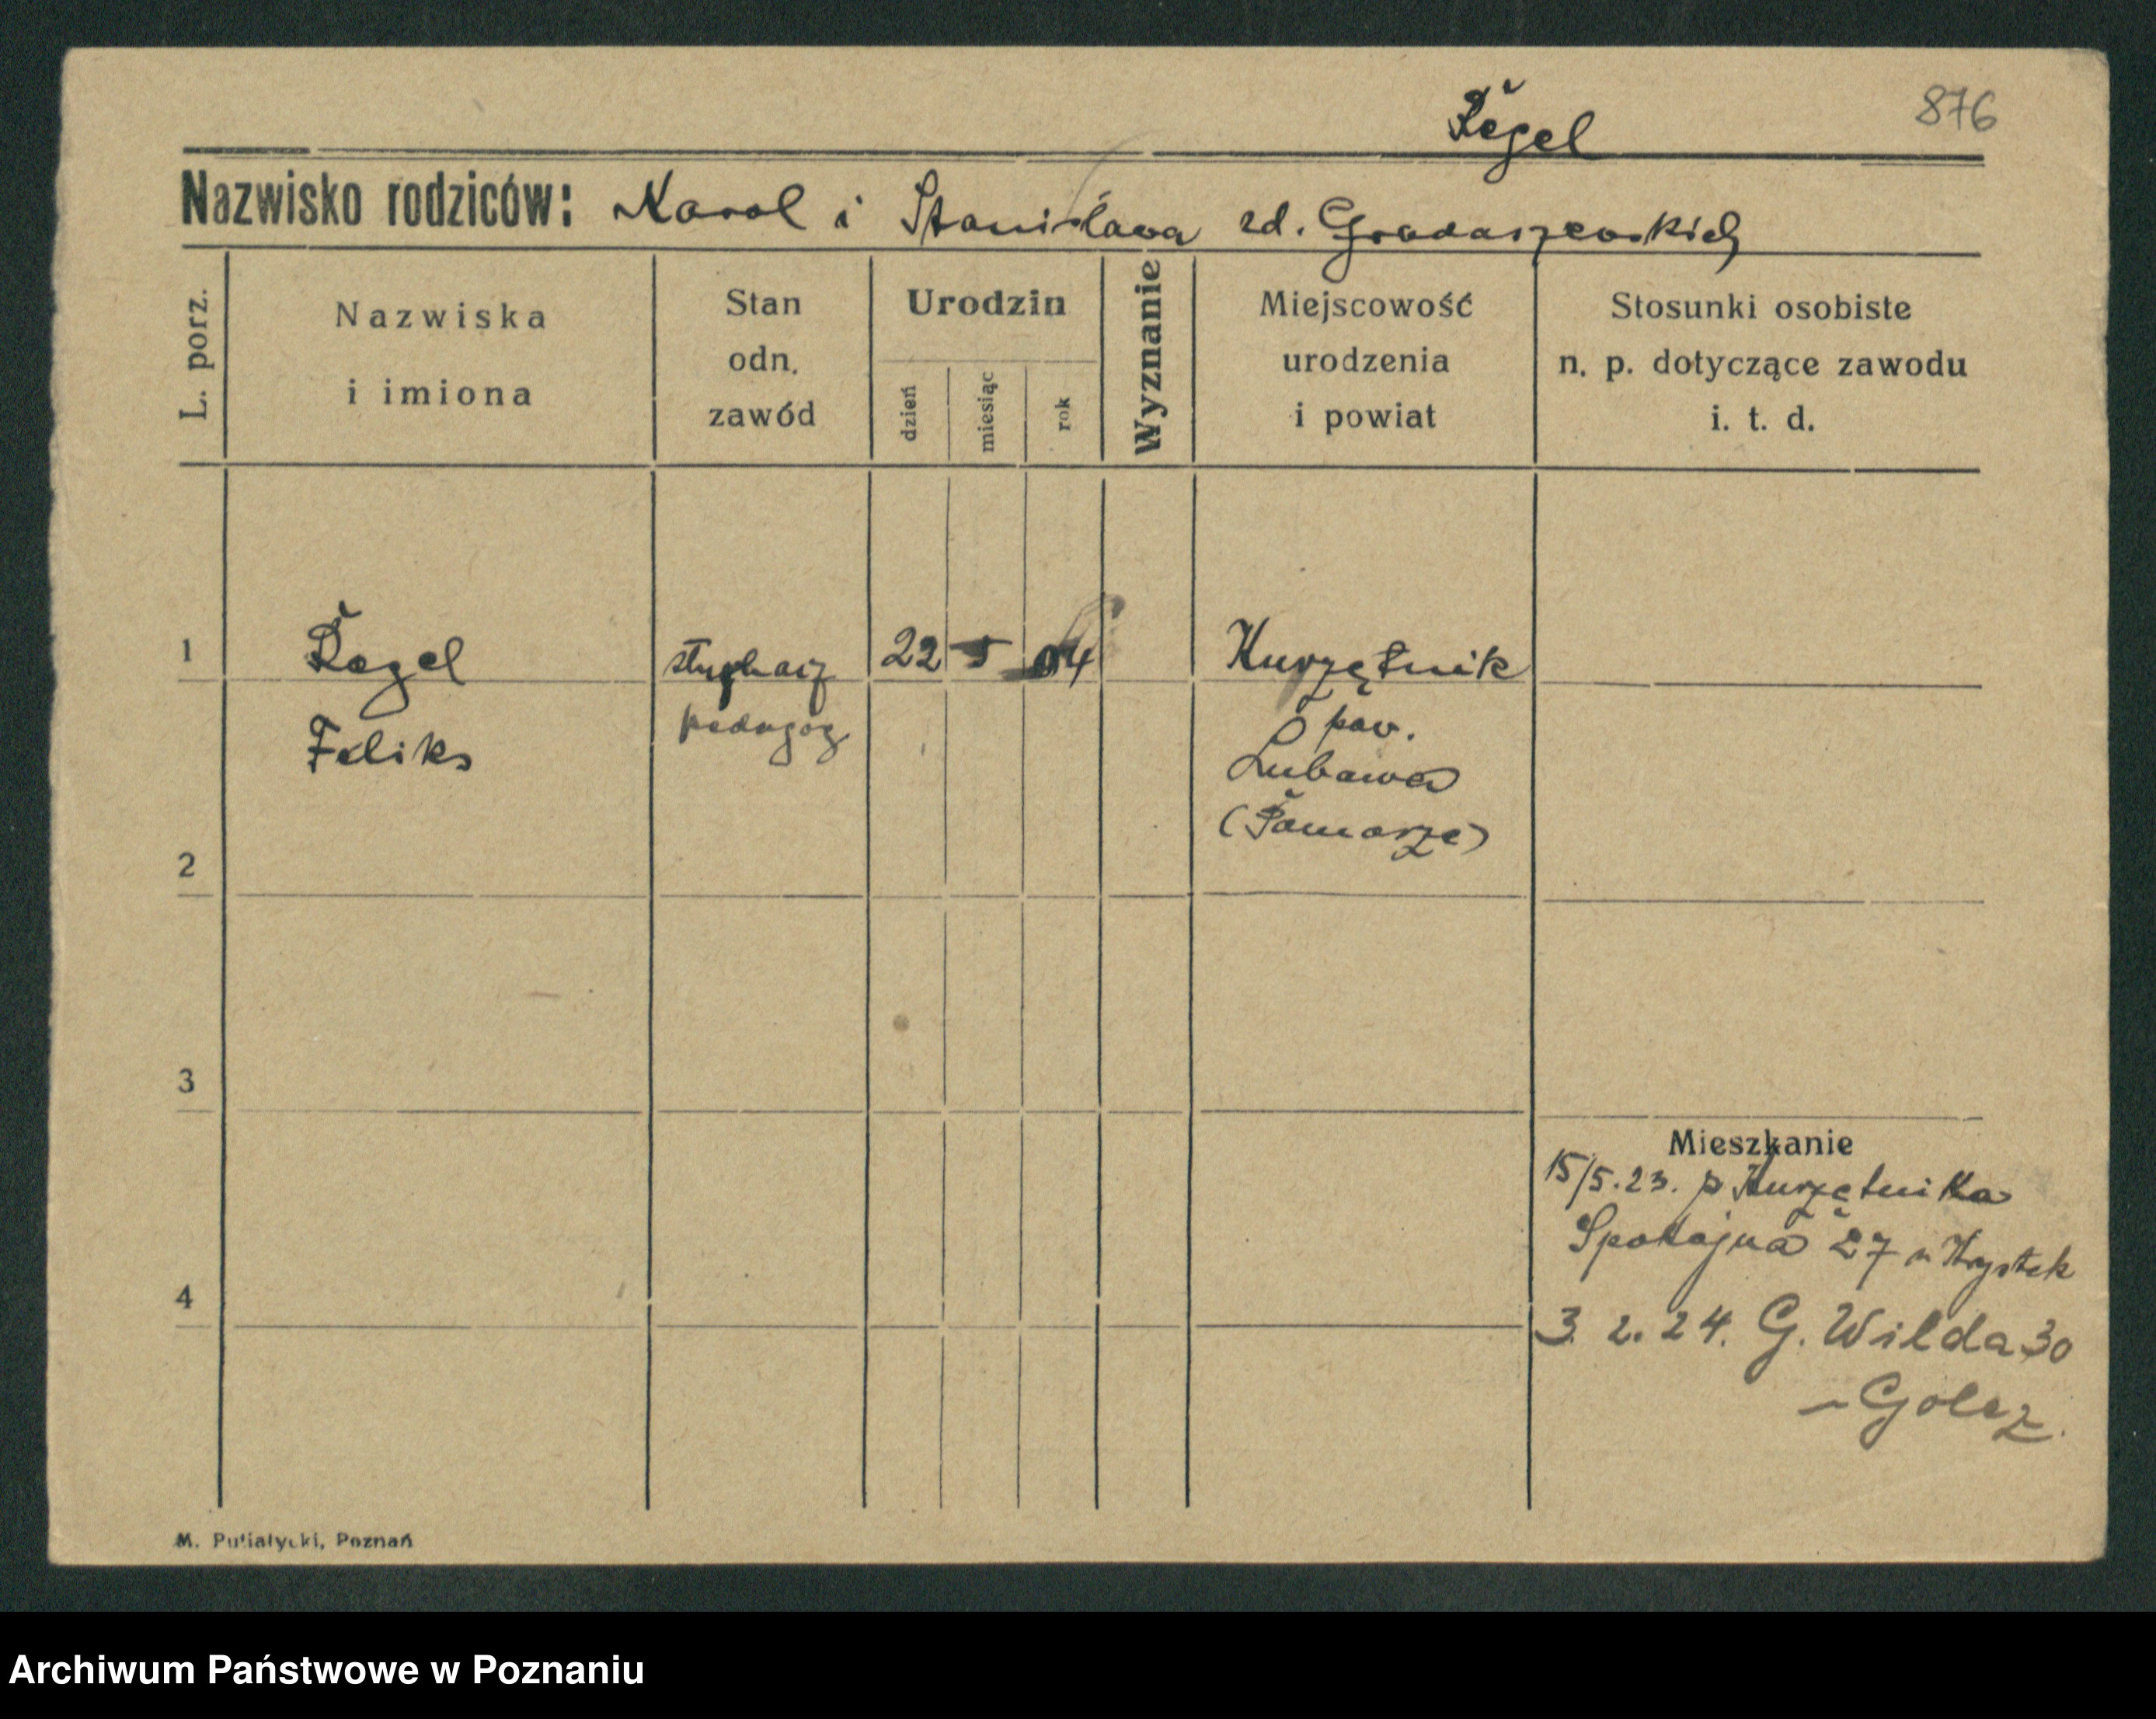 876
Żegel
Nazwisko rodziców: Karol i Stanisława zd. Gradaszewskich
L. porz.
Nazwiska
i imiona
Stan
odn.
zawód
Urodzin
dzień
miesiąc
rok
Wyznanie
Miejscowość
urodzenia
i powiat
Stosunki osobiste
n. p. dotyczące zawodu
i. t. d.
1
Żegel
Feliks
słuchacz
pedagog
22 5 04
Kurzętnik
pow.
Lubawa
(Pomorze)
2
3
4
Mieszkanie
15/5.23. p Kurzętnika
Spokojna 27 u Krystek
3. 2. 24. G. Wilda 30
Golcz.
M. Putiatycki, Poznań
Archiwum Państwowe w Poznaniu